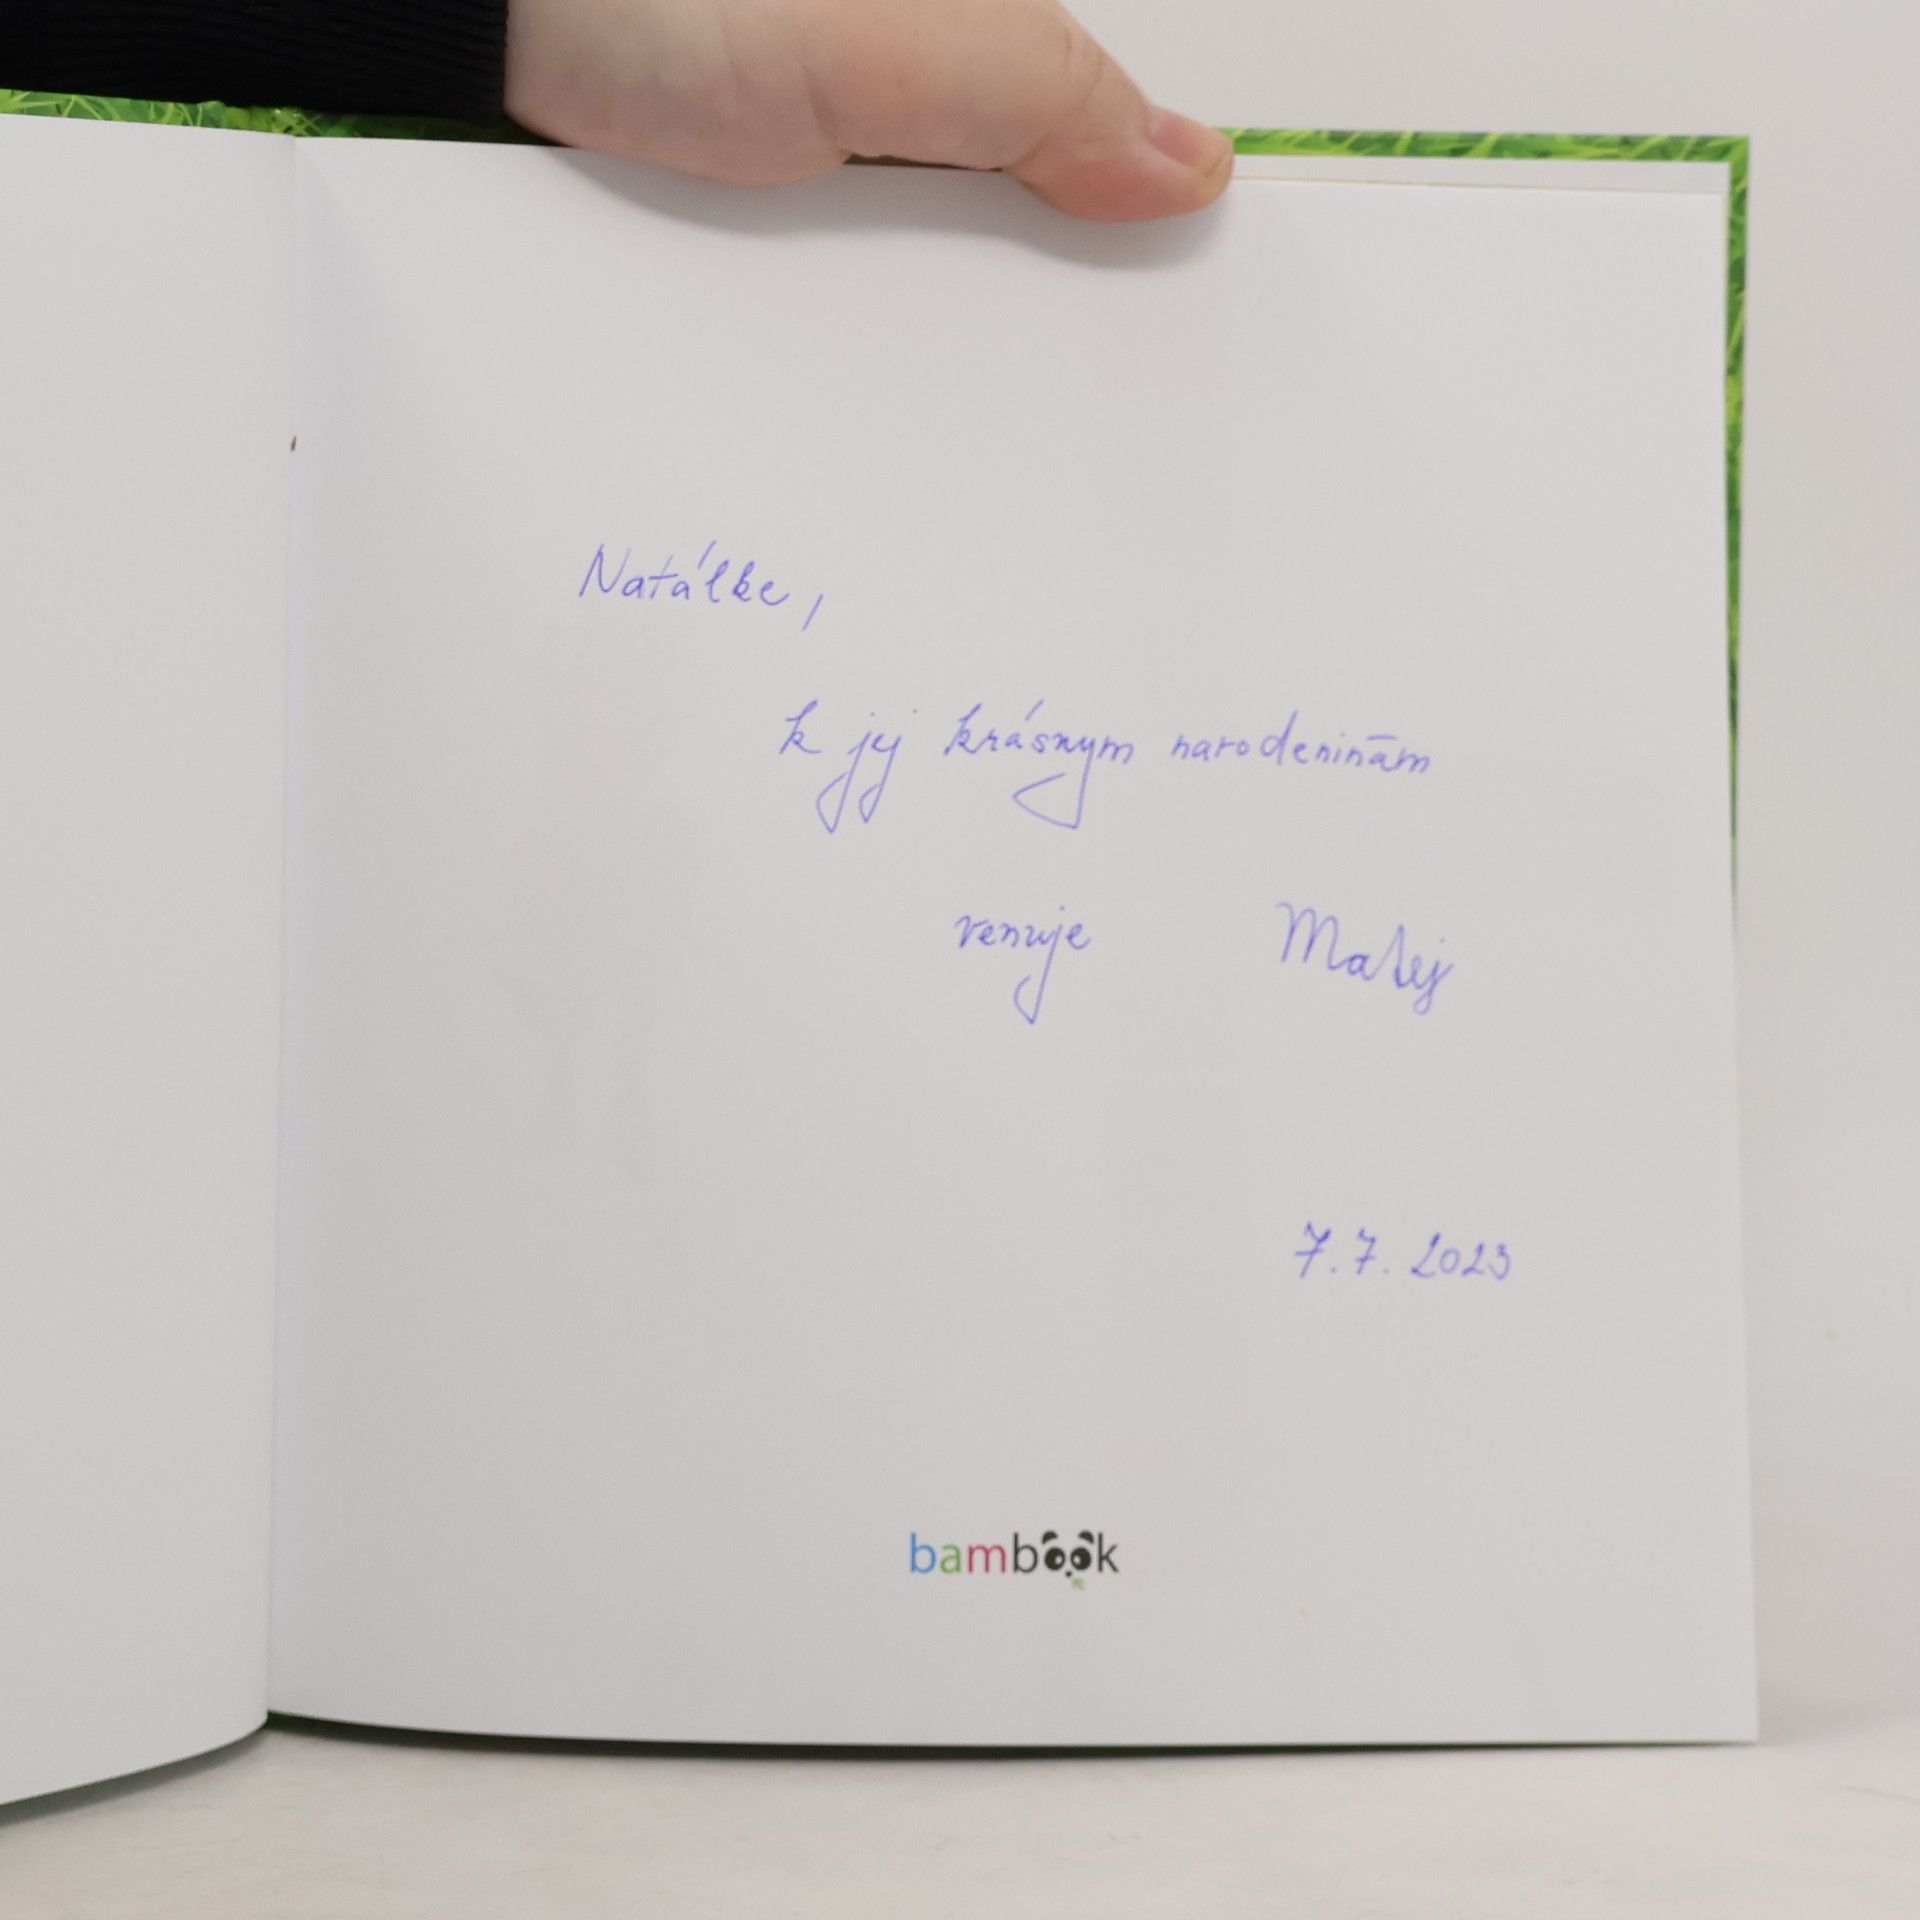 Natálke,
k jej krásnym narodeninám
venuje Matej
7.7. 2023
bambook